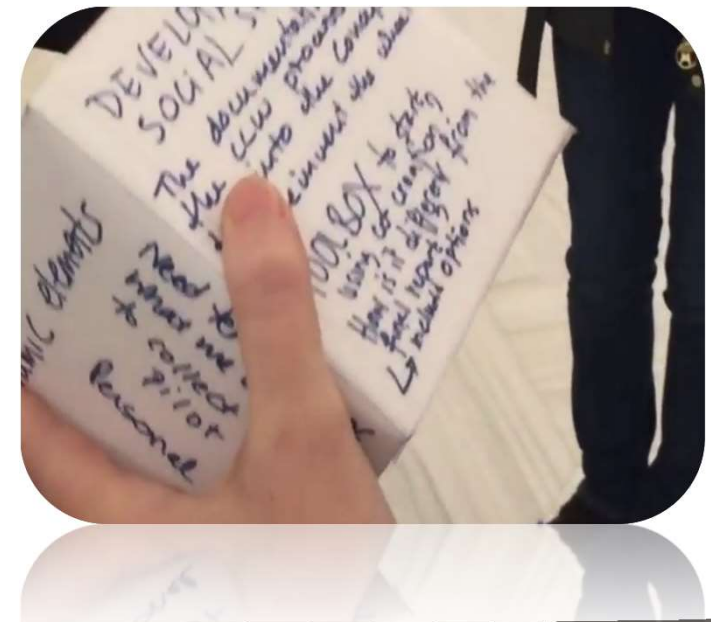 DEVELO
SOCIAL S
The documentati
the LLW process
into the concep
the
TOOLBOX to start
using cct creating
How is it different from the
final report
↳ include options
elements
Need to
what we
to collect
pilot
Personal